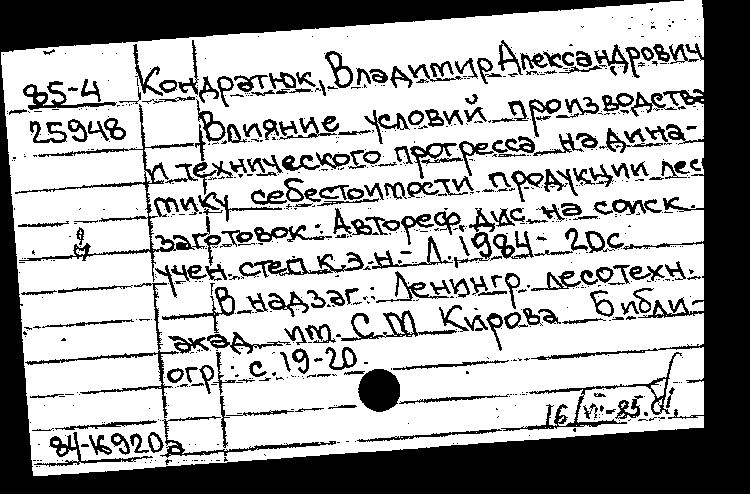 85-4 Кондратюк, Владимир Александрович
25948 Влияние условий производства
и технического прогресса на дина-
мику себестоимости продукции лес
заготовок: Автореф. дис. на соиск.
учен. степ к.э.н.- Л., 1984- 20с.
В надзаг.: Ленингр. лесотехн.
акад. им. С.М Кирова Библи-
огр.: с. 19-20.
16/VII-85.
84-16920а